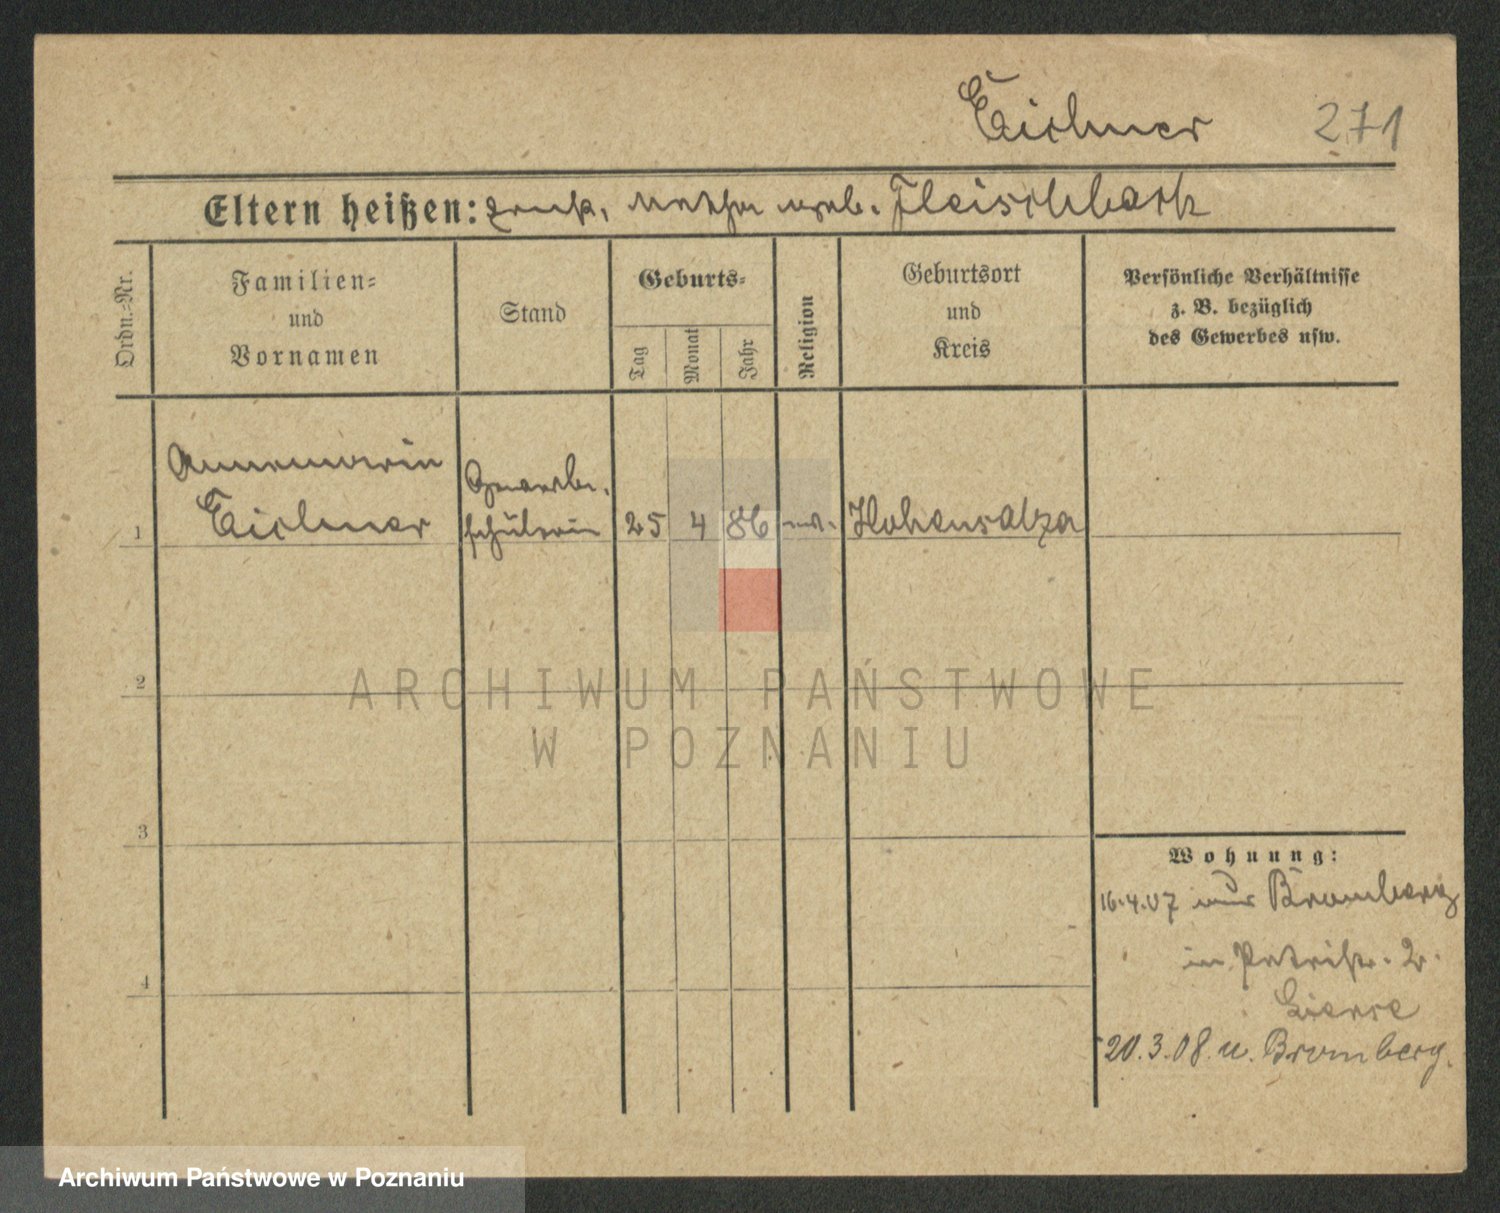 Eichner 271
Eltern heißen: Martha geb. Fleischhack
Ordn.-Nr.
Familien-
und
Vornamen
Stand
Geburts-
Tag
Monat
Jahr
Religion
Geburtsort
und
Kreis
Persönliche Verhältnisse
z. B. bezüglich
des Gewerbes usw.
Annemarie Gewerbe-
1 Eichner schülerin 25 4 86 ev. Hohensalza
2
3
4
Wohnung:
16.4.07 aus Bromberg
in Petristr. 2.
20.3.08. n. Bromberg.
ARCHIWUM PAŃSTWOWE
W POZNANIU
Archiwum Państwowe w Poznaniu